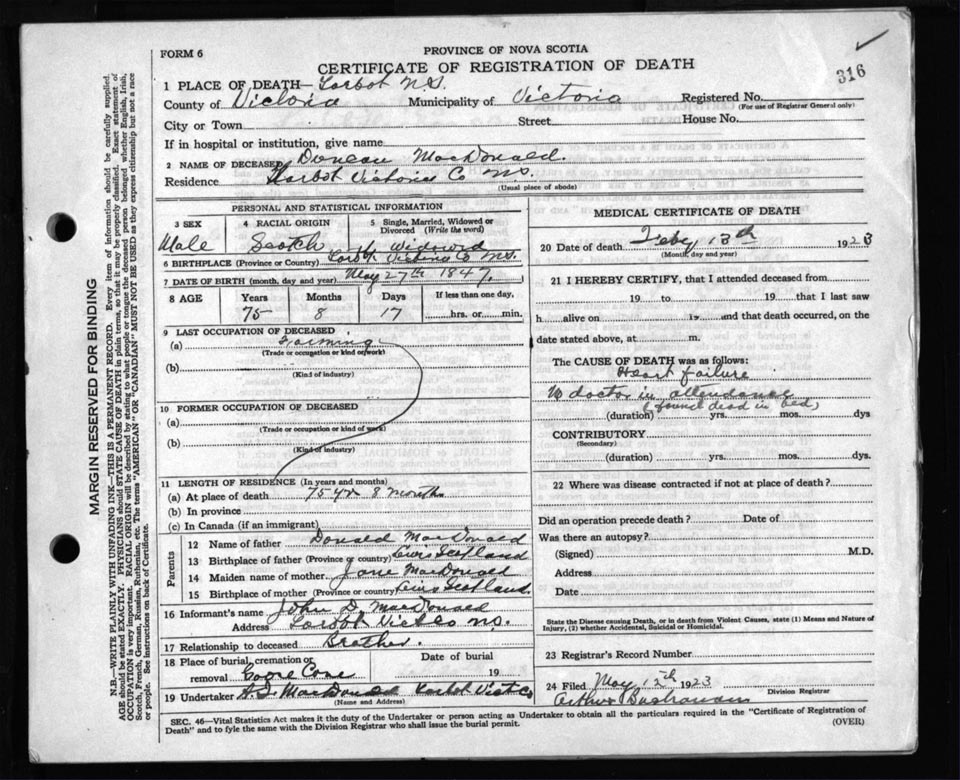 316
FORM 6
PROVINCE OF NOVA SCOTIA
CERTIFICATE OF REGISTRATION OF DEATH
1 PLACE OF DEATH— Tarbot N.S.
County of Victoria Municipality of Victoria Registered No.
(For use of Registrar General only)
City or Town Street House No.
If in hospital or institution, give name
2 NAME OF DECEASED Duncan MacDonald.
Residence Tarbot Victoria Co N.S.
(Usual place of abode)
PERSONAL AND STATISTICAL INFORMATION
3 SEX 4 RACIAL ORIGIN 5 Single, Married, Widowed or Divorced (Write the word)
Male Scotch Widowed
6 BIRTHPLACE (Province or Country) Tarbot Victoria Co N.S.
7 DATE OF BIRTH (month, day and year) May 27th 1847
8 AGE Years Months Days If less than one day,
75 8 17 hrs. or min.
9 LAST OCCUPATION OF DECEASED
(a) Farming
(Trade or occupation or kind of work)
(b)
(Kind of industry)
10 FORMER OCCUPATION OF DECEASED
(a)
(Trade or occupation or kind of work)
(b)
(Kind of industry)
11 LENGTH OF RESIDENCE (In years and months)
(a) At place of death 75 yr 8 months
(b) In province
(c) In Canada (if an immigrant)
Parents
12 Name of father Donald MacDonald
13 Birthplace of father (Province or country) Scotland
14 Maiden name of mother Jane MacDonald
15 Birthplace of mother (Province or country) Scotland
16 Informant's name John D. MacDonald
Address Tarbot Vict Co N.S.
17 Relationship to deceased Brother.
18 Place of burial, cremation or removal Goose Cove Date of burial 19
19 Undertaker MacDonald Tarbot Vict Co
(Name and Address)
MEDICAL CERTIFICATE OF DEATH
20 Date of death Feby 13th 1923
(Month, day and year)
21 I HEREBY CERTIFY, that I attended deceased from
19 to 19 that I last saw
h alive on 19 and that death occurred, on the
date stated above, at m.
The CAUSE OF DEATH was as follows:
Heart failure
No doctor in attendance
(found dead in bed)
(duration) yrs. mos. dys
CONTRIBUTORY
(Secondary)
(duration) yrs. mos. dys.
22 Where was disease contracted if not at place of death?
Did an operation precede death? Date of
Was there an autopsy?
(Signed) M.D.
Address
Date
State the Disease causing Death, or in death from Violent Causes, state (1) Means and Nature of Injury, (2) whether Accidental, Suicidal or Homicidal.
23 Registrar's Record Number
24 Filed May 12th 1923
Division Registrar
Arthur Buchanan
SEC. 46—Vital Statistics Act makes it the duty of the Undertaker or person acting as Undertaker to obtain all the particulars required in the "Certificate of Registration of
Death" and to fyle the same with the Division Registrar who shall issue the burial permit. (OVER)
MARGIN RESERVED FOR BINDING
N.B.—WRITE PLAINLY WITH UNFADING INK—THIS IS A PERMANENT RECORD. Every item of information should be carefully supplied.
AGE should be stated EXACTLY. PHYSICIANS should STATE CAUSE OF DEATH in plain terms, so that it may be properly classified. Exact statement of
OCCUPATION is very important. RACIAL ORIGIN will be described by stating to what people or tongue the deceased person belonged whether English, Irish,
Scotch, French, German, Russian, Ruthenian, etc. The terms "AMERICAN" OR "CANADIAN" MUST NOT BE USED as they express citizenship but not a race
or people. See instructions on back of Certificate.